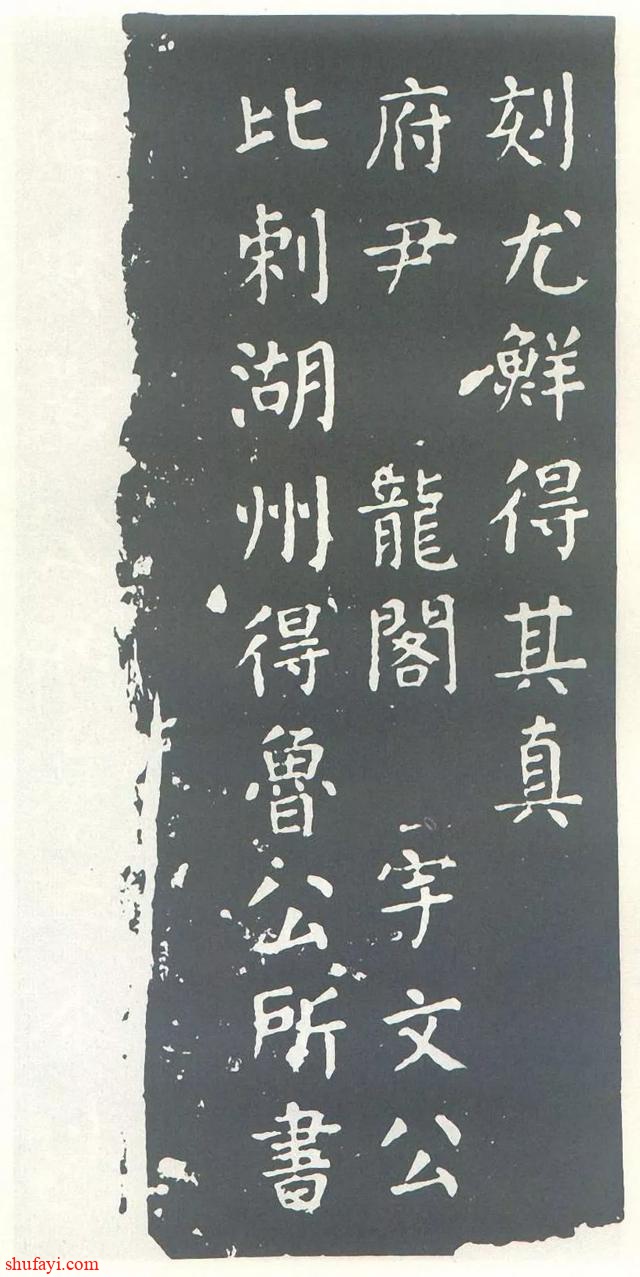 刻尤鮮得其真
府尹 龍閣 宇文公
比刺湖州得魯公所書
shufayi.com